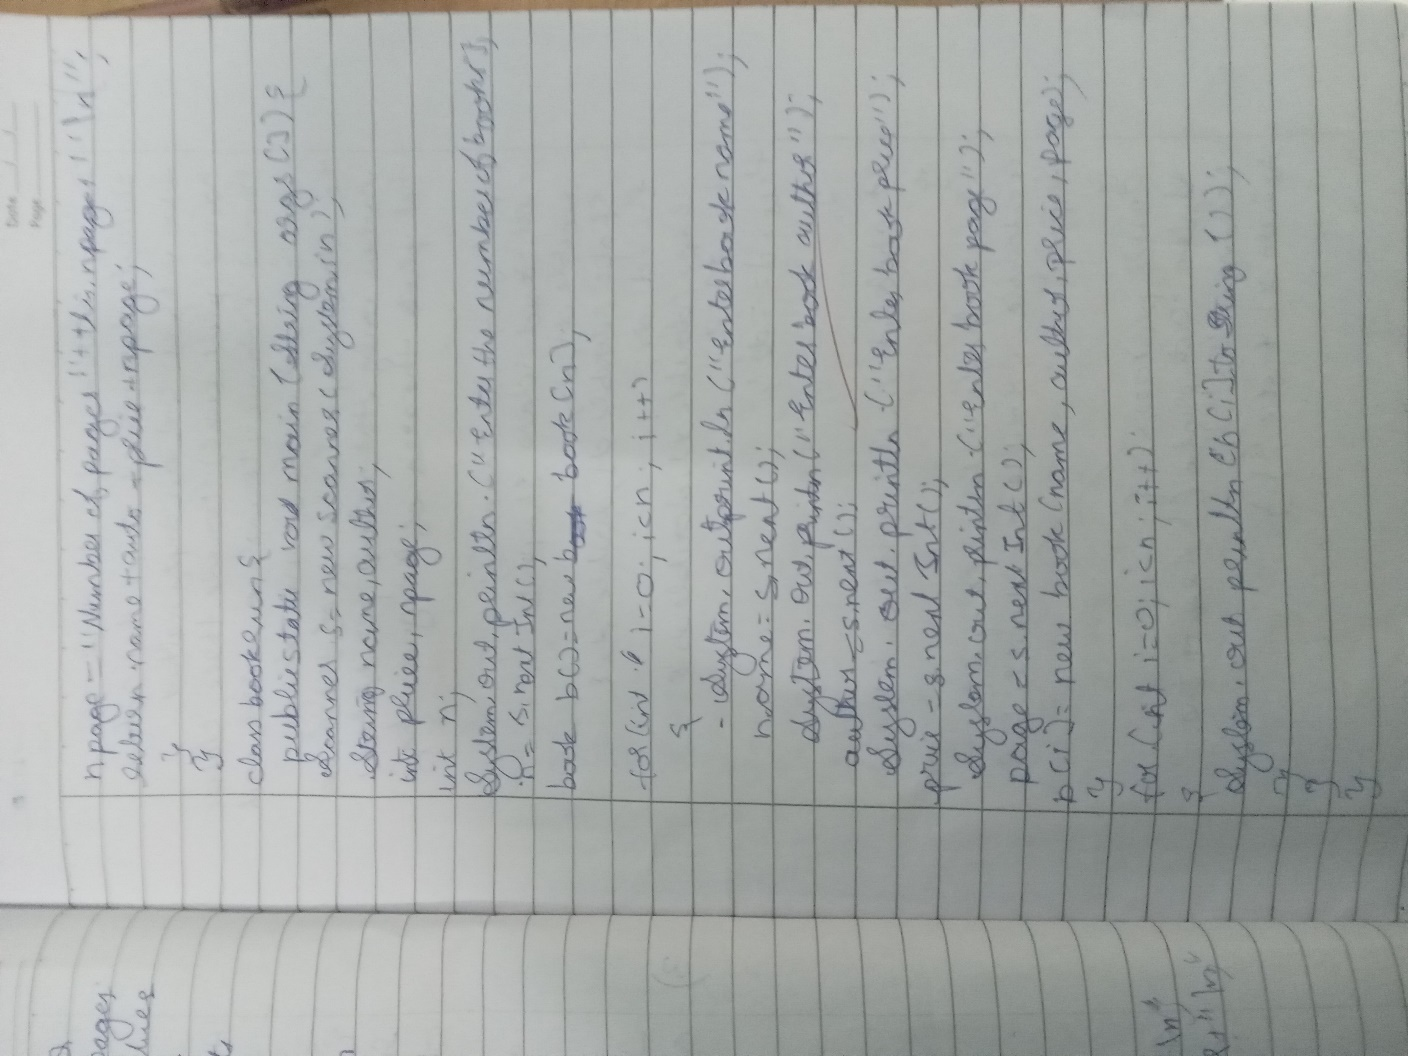 Date
Page
npage = "Number of pages" + this.npages + "\n";
return name + auth + price + npage;
}
}
class bookrun {
public static void main (String args []) {
Scanner s = new scanner (System.in);
String name, author;
int price, npage;
int n;
System.out.println.("Enter the number of books");
n = s.next Int();
book b() = new book [n];
for (int i=0; i<n; i++)
{
- System.out.println ("Enter book name");
name = s.next();
System.out.println ("Enter book author");
author = s.next();
System.out.println.("Enter book price");
price = s.next Int();
System.out.println.("Enter book page");
page = s.next Int();
b[i] = new book (name, author, price, page);
}
for (int i=0; i<n; i++)
{
System.out println (b[i].to String ());
}
}
}
pages
\n"